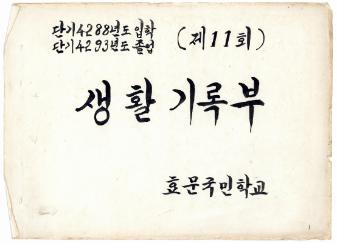 단기4288년도입학
단기4293년도졸업 (제11회)
생활기록부
효문국민학교